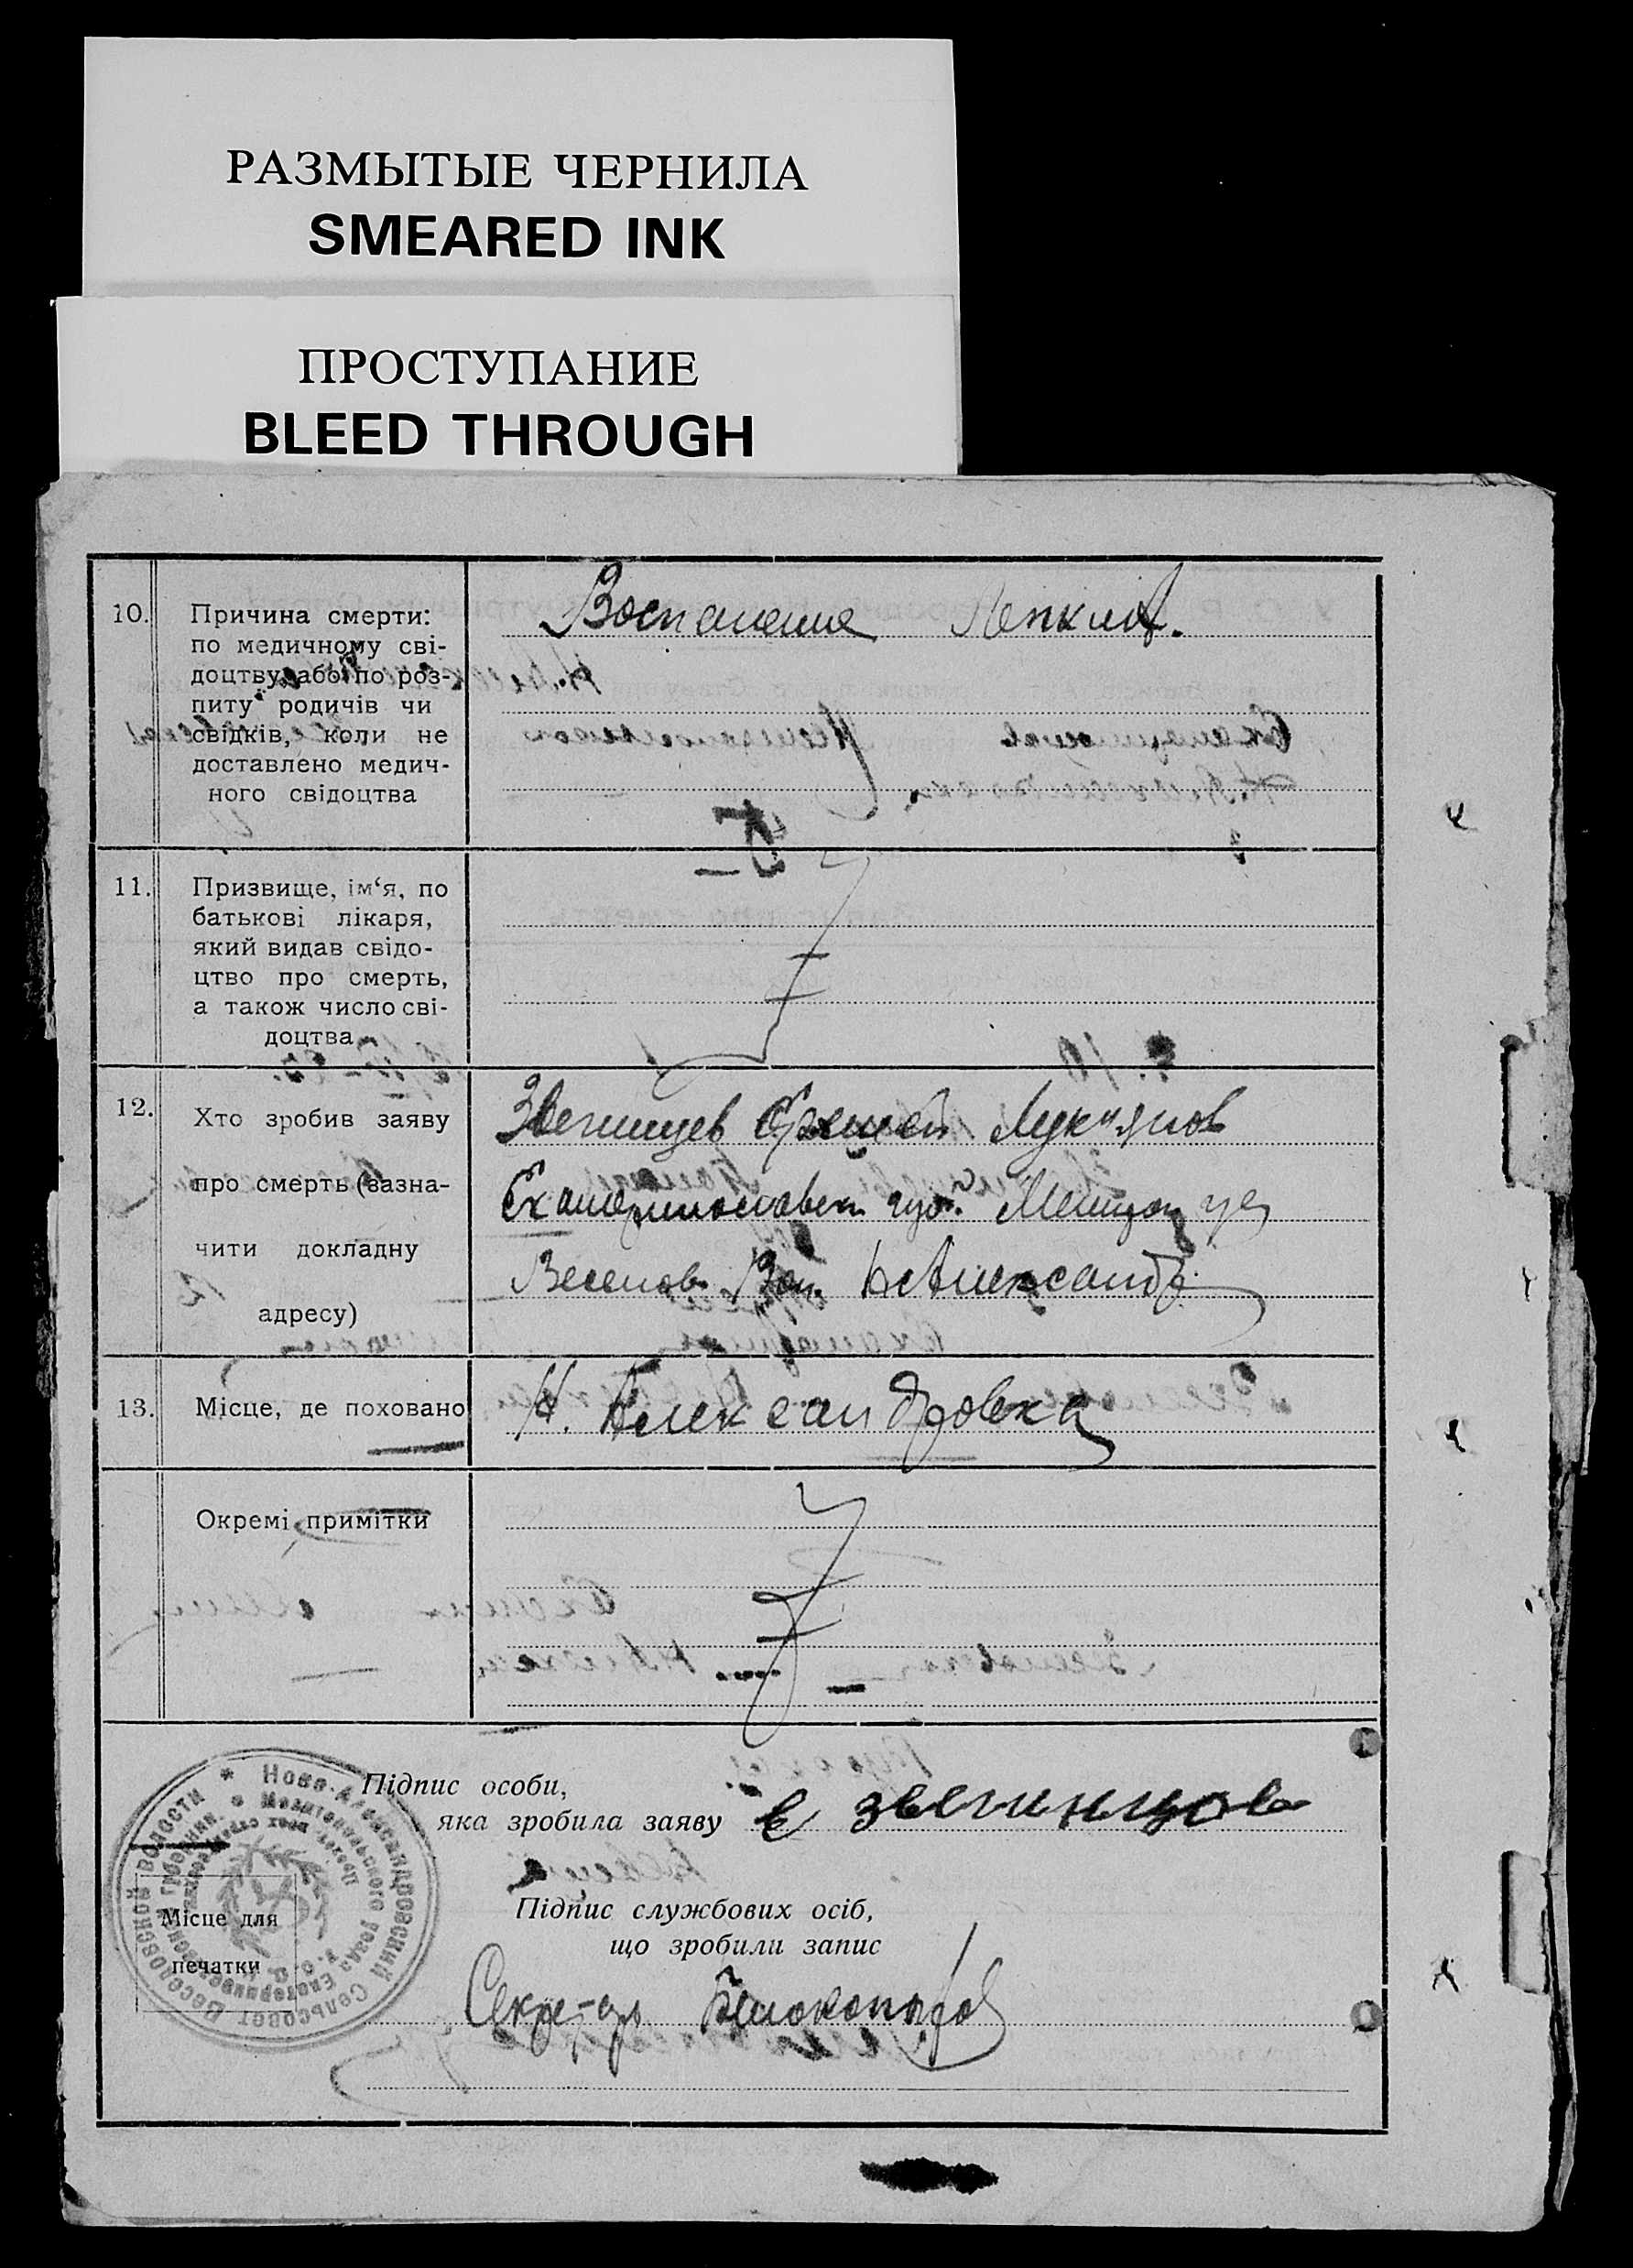 РАЗМЫТЫЕ ЧЕРНИЛА
SMEARED INK
ПРОСТУПАНИЕ
BLEED THROUGH
10. Причина смерти:
по медичному сві-
доцтву або по роз-
питу родичів чи
свідків, коли не
доставлено медич-
ного свідоцтва
Воспаление Легких.
11. Призвище, ім‘я, по
батькові лікаря,
який видав свідо-
цтво про смерть,
а також число сві-
доцтва
12. Хто зробив заяву
про смерть (зазна-
чити докладну
адресу)
Звегинцев Лукиянов
Екатеринославск губ. Мелитоп уез
Веселов. Вол. Н Александр
13. Місце, де поховано
Н. Александровка
Окремі примітки
Підпис особи,
яка зробила заяву Е звегинцов
Підпис службових осіб,
що зробили запис
Секре-арь Белокопытов
Місце для
печатки
Ново-Александровский Сельсовет Веселовской волости
Мелитопольского уезда Екатеринославской губернии